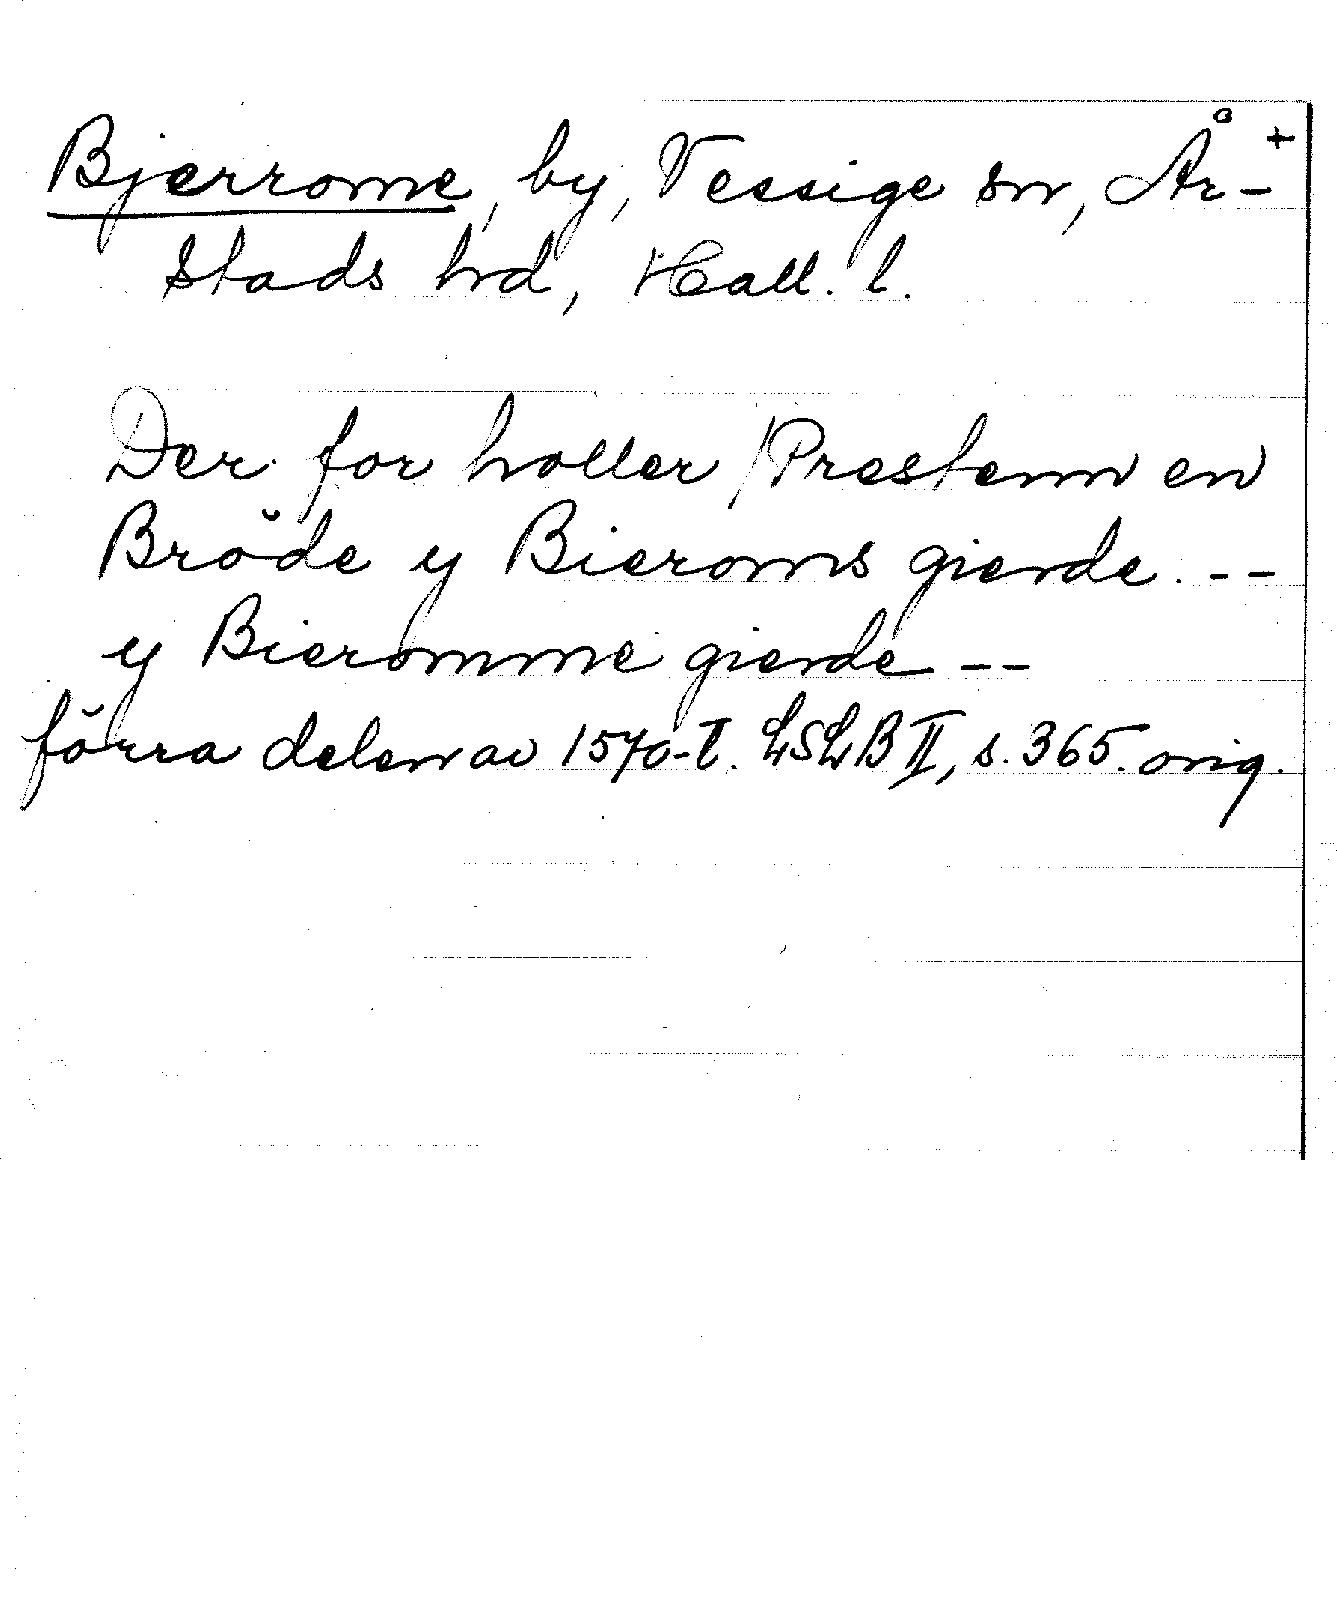 Bjerrome, by, Vessige sn, År- +
stads hd, Hall. l.
Der for holler /Prestenn en
Bröde y Bieroms gierde. --
y Bieromme gierde --
förra delen av 1570-t. LSLB II, s. 365. orig.